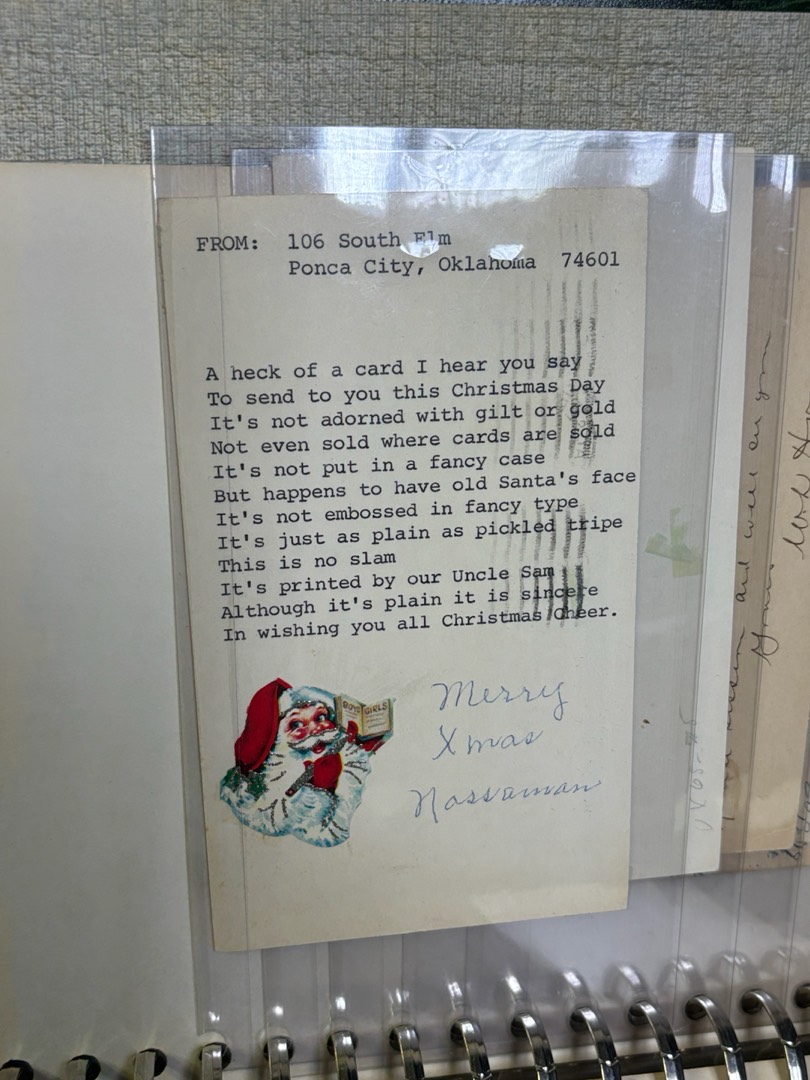 FROM: 106 South Elm
Ponca City, Oklahoma 74601
A heck of a card I hear you say
To send to you this Christmas Day
It's not adorned with gilt or gold
Not even sold where cards are sold
It's not put in a fancy case
But happens to have old Santa's face
It's not embossed in fancy type
It's just as plain as pickled tripe
This is no slam
It's printed by our Uncle Sam
Although it's plain it is sincere
In wishing you all Christmas Cheer.
BOYS GIRLS
Merry
Xmas
Nossaman
and well